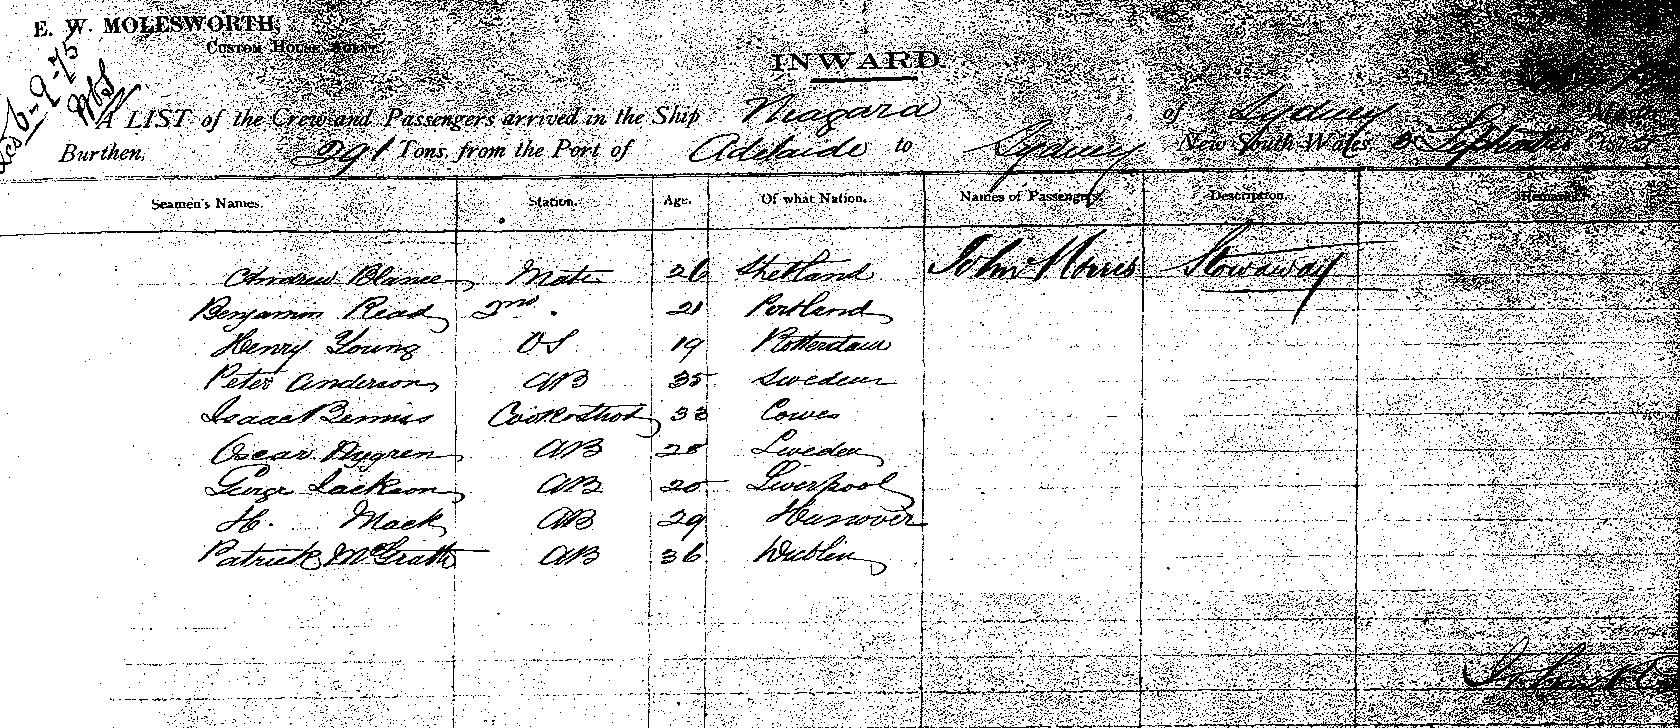 E. W. MOLESWORTH,
CUSTOM HOUSE AGENT.
6-9-75
INWARD
A LIST of the Crew and Passengers arrived in the Ship Niagara of Sydney
Burthen, 291 Tons, from the Port of Adelaide to Sydney New South Wales, September
Seamen's Names. Station. Age. Of what Nation. Names of Passengers Description. Remarks
Andrew Blance Mate 26 Shetland John Norris Stowaway
Benjamin Read 2nd. 21 Portland
Henry Young OS 19 Rotterdam
Peter Anderson AB 35 Sweden
Isaac Bennis Cook & Stwd 33 Cowes
Oscar Nygren AB 28 Sweden
George Jackson AB 20 Liverpool
H. Mack AB 29 Hanover
Patrick McGrath AB 36 Dublin